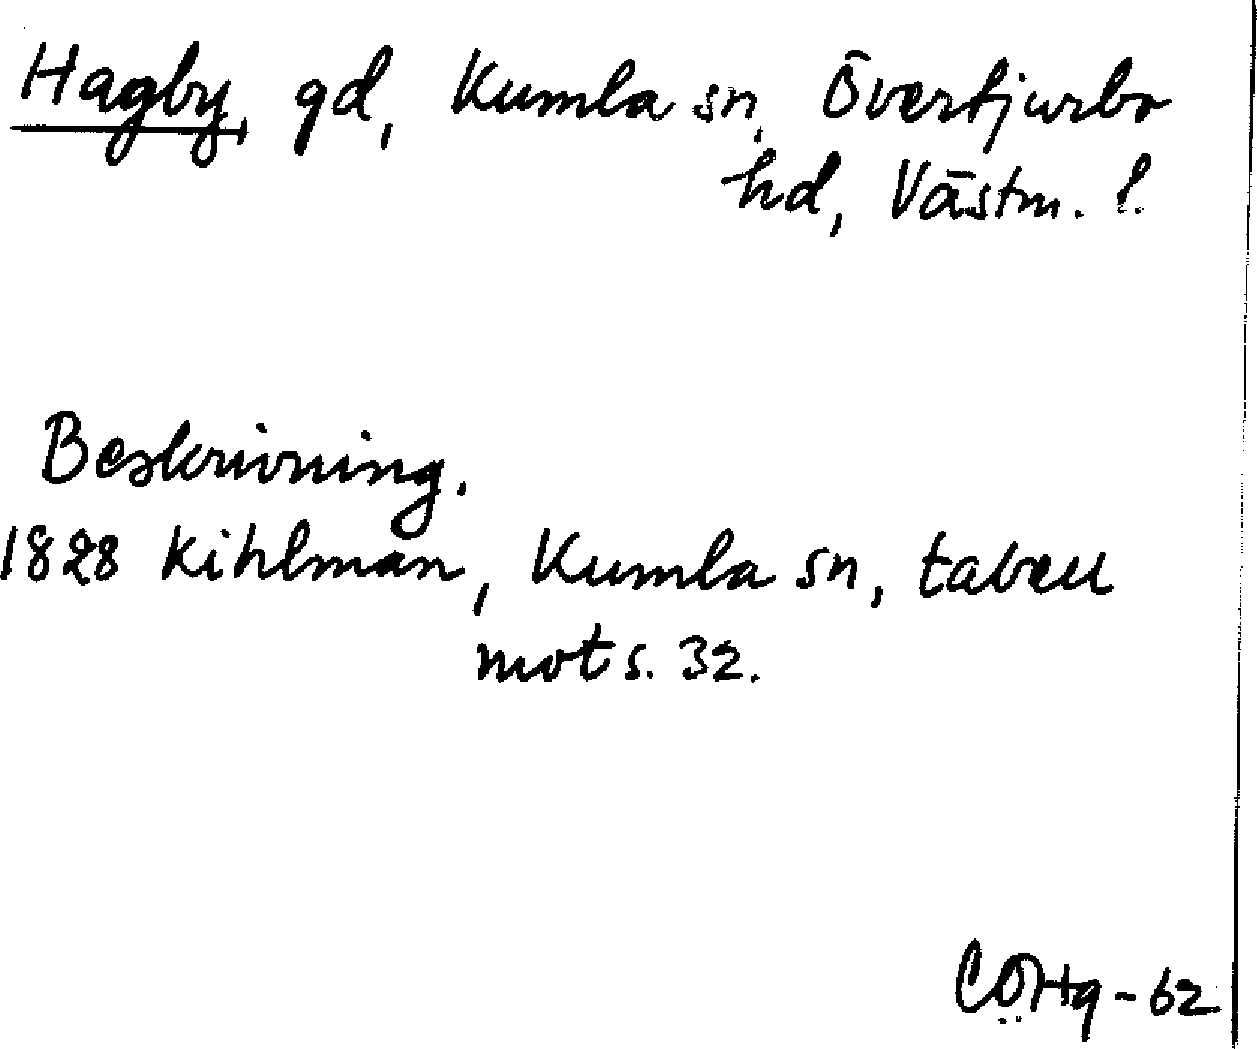 Hagby, gd, Kumla sn, Övertjurbo
hd, Västm. l.
Beskrivning.
1828 Kihlman, Kumla sn, tabell
mot s. 32.
CÖHg-62